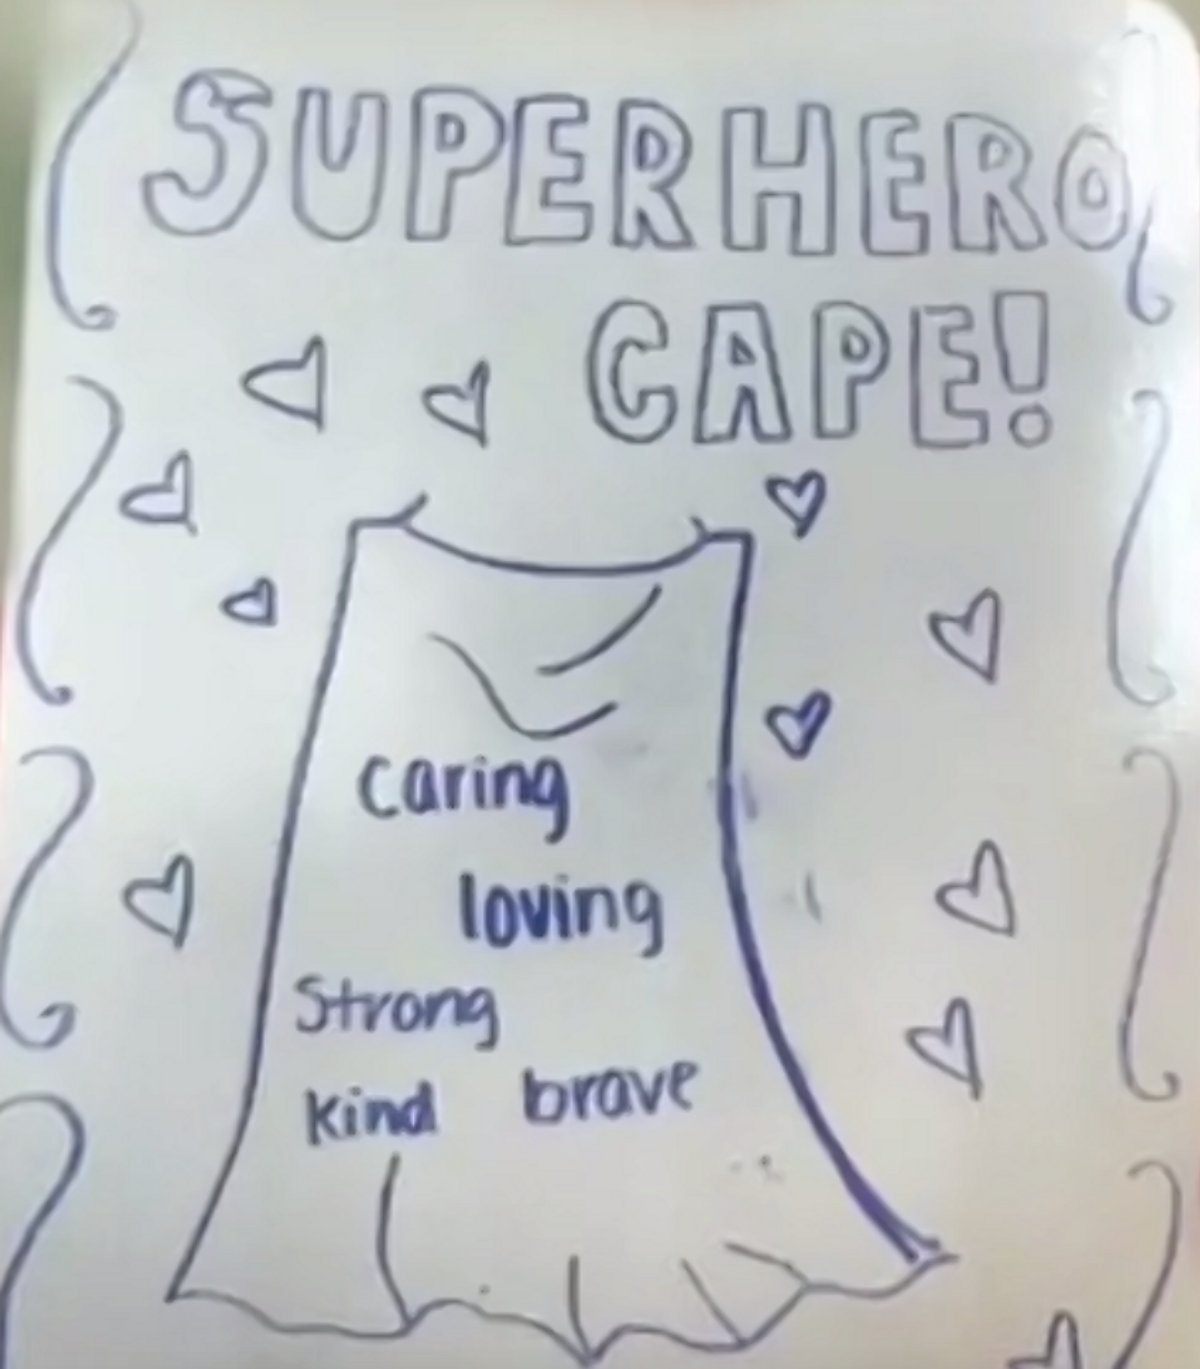 SUPERHERO
CAPE!
caring
loving
Strong
kind brave